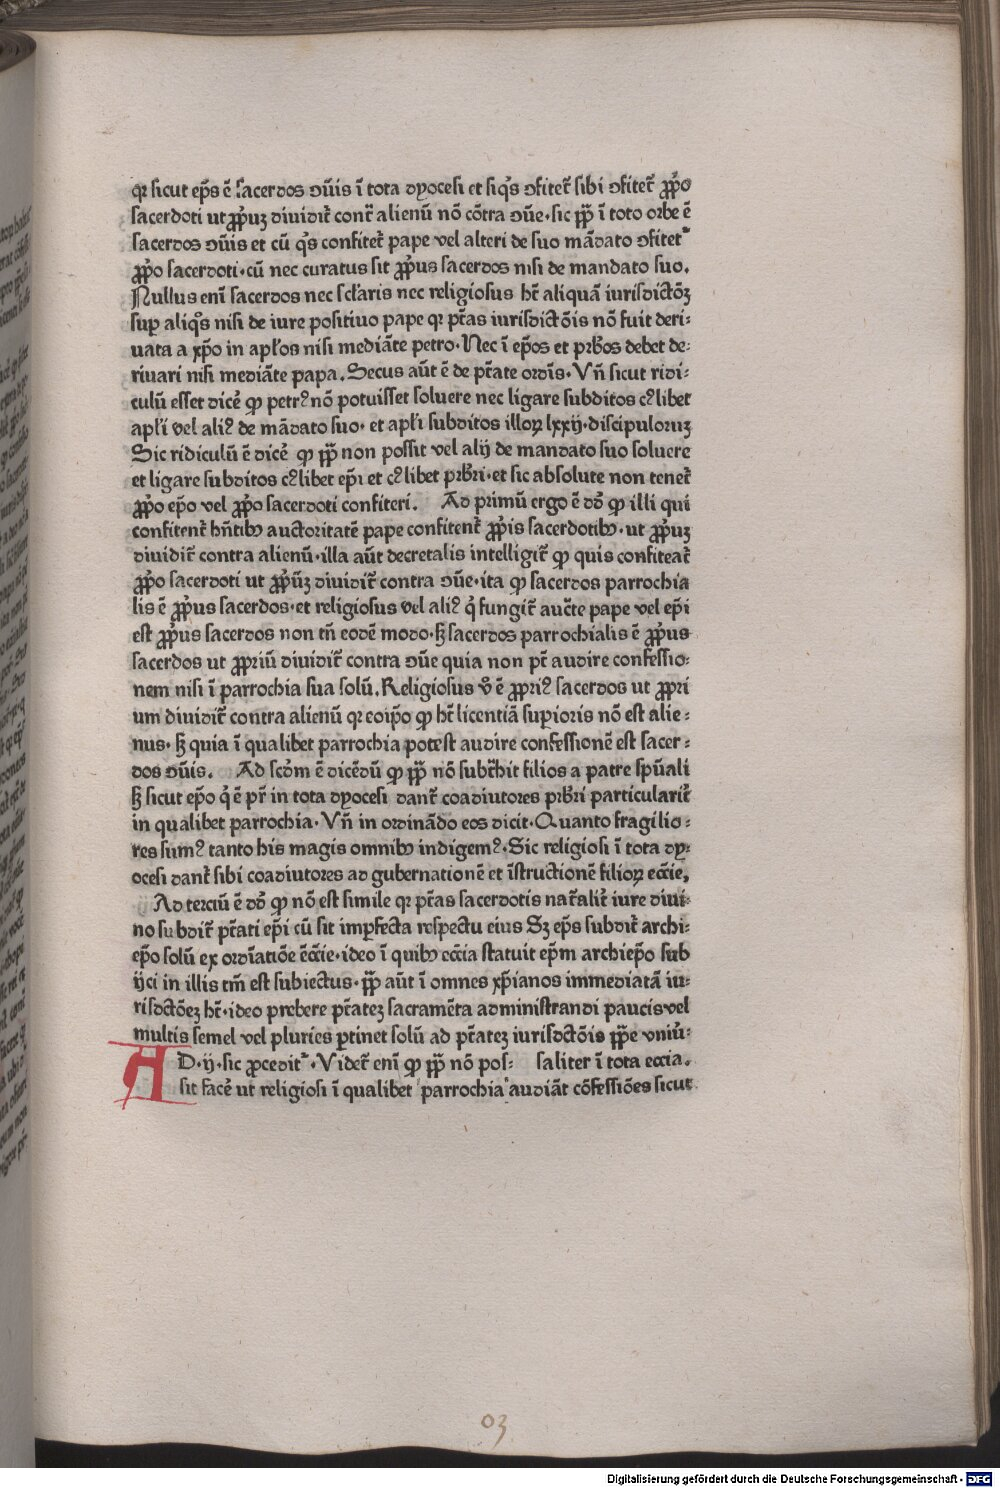 qꝛ sicut ep̄s ē sacerdos ↄ̄uis ī tota dyocesi et siq̄s ↄfitet̄ sibi ↄfitet̄ ꝓp̄o
sacerdoti ut ꝓp̄uꝫ diuidit̄ cont̄ alienū nō cōtra ↄ̄ue·sic pp̄ ī toto orbe ē
sacerdos ↄ̄uis et cū q̄s confitet̄ pape vel alteri de suo mādato ↄfitet̄
ꝓp̄o sacerdoti·cū nec curatus sit ꝓp̄us sacerdos nisi de mandato suo.
Nullus eni sacerdos nec scl'aris nec religiosus ht̄ aliquā iurisdictōꝫ
sup aliq̄s nisi de iure positiuo pape qꝛ pt̄as iurisdictōis nō fuit deri:
uata a xp̄o in apl'os nisi mediāte petro·Nec ī ep̄os et prb̄os debet de:
riuari nisi mediāte papa. Secus aūt ē de pt̄ate ordīs·Vn̄ sicut ridi:
culū esset dicē ꝙ petrꝰ nō potuisset soluere nec ligare subditos cꝰlibet
apl'i vel aliꝰ de mādato suo·et apl'i subditos illoꝝ lxxij·discipulorūꝫ
Sic ridiculū ē dicē ꝙ pp̄ non possit vel alij de mandato suo soluere
et ligare subditos cꝰlibet ep̄i et cꝰlibet prb̄ri·et sic absolute non tenet̄
ꝓp̄o ep̄o vel ꝓp̄o sacerdoti confiteri. Ad primū ergo ē dō ꝙ illi qui
confitent̄ hn̄tibꝫ auctoritatē pape confitent̄ ꝓp̄is sacerdotibꝫ·ut ꝓp̄uꝫ
diuidit̄ contra alienū·illa aūt decretalis intelligit̄ ꝙ quis confiteat̄
ꝓp̄o sacerdoti ut ꝓp̄ūꝫ diuidit̄ contra ↄ̄ue·ita ꝙ sacerdos parrochia
lis ē ꝓp̄us sacerdos·et religiosus vel aliꝰ q̄ fungit̄ auc̄te pape vel ep̄i
est ꝓp̄us sacerdos non tn̄ eodē modo·sꝫ sacerdos parrochialis ē ꝓp̄us
sacerdos ut ꝓpriū diuidit̄ contra ↄ̄ue quia non pt̄ audire confessio:
nem nisi ī parrochia sua solū. Religiosus v̄ ē ꝓpriꝰ sacerdos ut ꝓpri
um diuidit̄ contra alienū qꝛ eoip̄o ꝙ ht̄ licentiā supioris nō est alie:
nus·sꝫ quia ī qualibet parrochia potest audire confessionē est sacer:
dos ↄ̄uis. Ad scd̄m ē dicēdū ꝙ pp̄ nō subt̄hit filios a patre spūali
sꝫ sicut ep̄o q̄ ē pr̄ in tota dyocesi dant̄ coadiutores prb̄ri particularit̄
in qualibet parrochia·Vn̄ in ordinādo eos dicit·Quanto fragilio:
res sumꝰ tanto his magis omnibꝫ indigemꝰ·Sic religiosi ī tota dy:
ocesi dant̄ sibi coadiutores ad gubernationē et īstructionē filioꝝ eccīe.
Ad terciū ē dō ꝙ nō est simile qꝛ pt̄as sacerdotis nat̄alit̄ iure diui:
no subdit̄ pt̄ati ep̄i cū sit imꝑfecta respectu eius Sꝫ ep̄s subdit̄ archi:
ep̄o solū ex ordīatiōe ēccīe·ideo ī quibꝫ eccīa statuit ep̄m archiep̄o sub
ijci in illis tm̄ est subiectus·pp̄ aūt ī omnes xp̄ianos immediatā iu:
risdctōeꝫ ht̄·ideo prebere pt̄ateꝫ sacramēta administrandi paucis vel
multis semel vel pluries ꝑtinet solū ad pt̄ateꝫ iurisdctōis pp̄e vniū:
AD·ij·sic ꝓcedit̄·Videt̄ eni ꝙ pp̄ nō pos: saliter ī tota eccīa.
sit facē ut religiosi ī qualibet parrochia audiāt cōfessiōes sicut
03
Digitalisierung gefördert durch die Deutsche Forschungsgemeinschaft - DFG